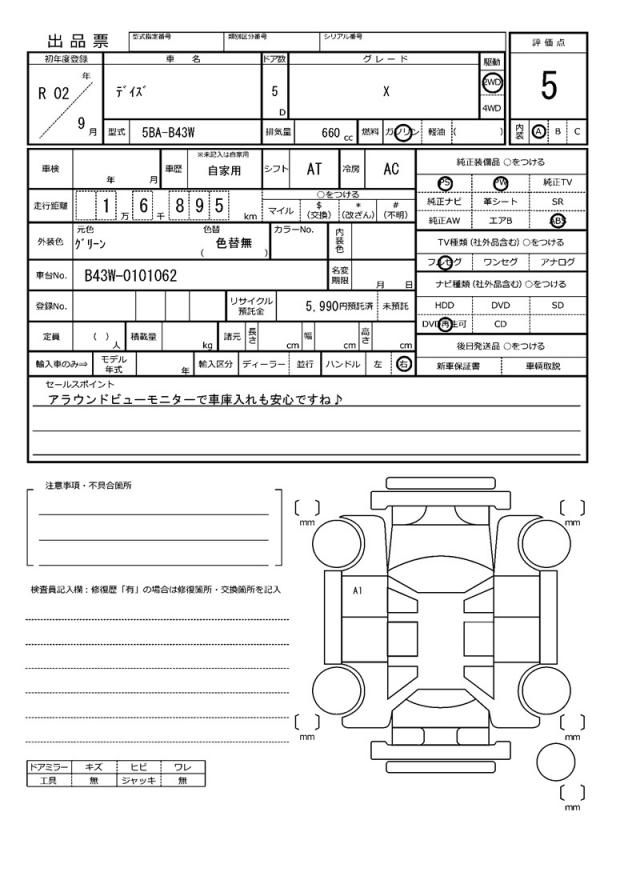 出品票
型式指定番号 類別区分番号 シリアル番号
評価点
初年度登録 車名 ドア数 グレード 駆動
R 02 年 9 月
デイズ
5 D
X
2WD
4WD
5
型式 5BA-B43W 排気量 660 cc 燃料 ガソリン 軽油 ( )
内装 A B C
車検 年 月 車歴 ※未記入は自家用 自家用 シフト AT 冷房 AC
純正装備品 ○をつける
PS PW 純正TV
純正ナビ 革シート SR
純正AW エアB ABS
走行距離 1 万 6 千 8 9 5 km
○をつける
マイル $(交換) *(改ざん) #(不明)
TV種類(社外品含む)○をつける
フルセグ ワンセグ アナログ
外装色 元色 グリーン 色替 色替無 ( ) カラーNo. 内装色
車台No. B43W-0101062 名変期限 月 日
ナビ種類(社外品含む)○をつける
HDD DVD SD
DVD再生可 CD
登録No. リサイクル預託金 5,990円預託済 未預託
定員 ( ) 人 積載量 kg 諸元 長さ cm 幅 cm 高さ cm
後日発送品 ○をつける
新車保証書 車輌取説
輸入車のみ⇒ モデル年式 年 輸入区分 ディーラー 並行 ハンドル 左 右
セールスポイント
アラウンドビューモニターで車庫入れも安心ですね♪
注意事項・不具合箇所
検査員記入欄：修復歴「有」の場合は修復箇所・交換箇所を記入
mm
mm
A1
mm
mm
mm
ドアミラー キズ ヒビ ワレ
工具 無 ジャッキ 無